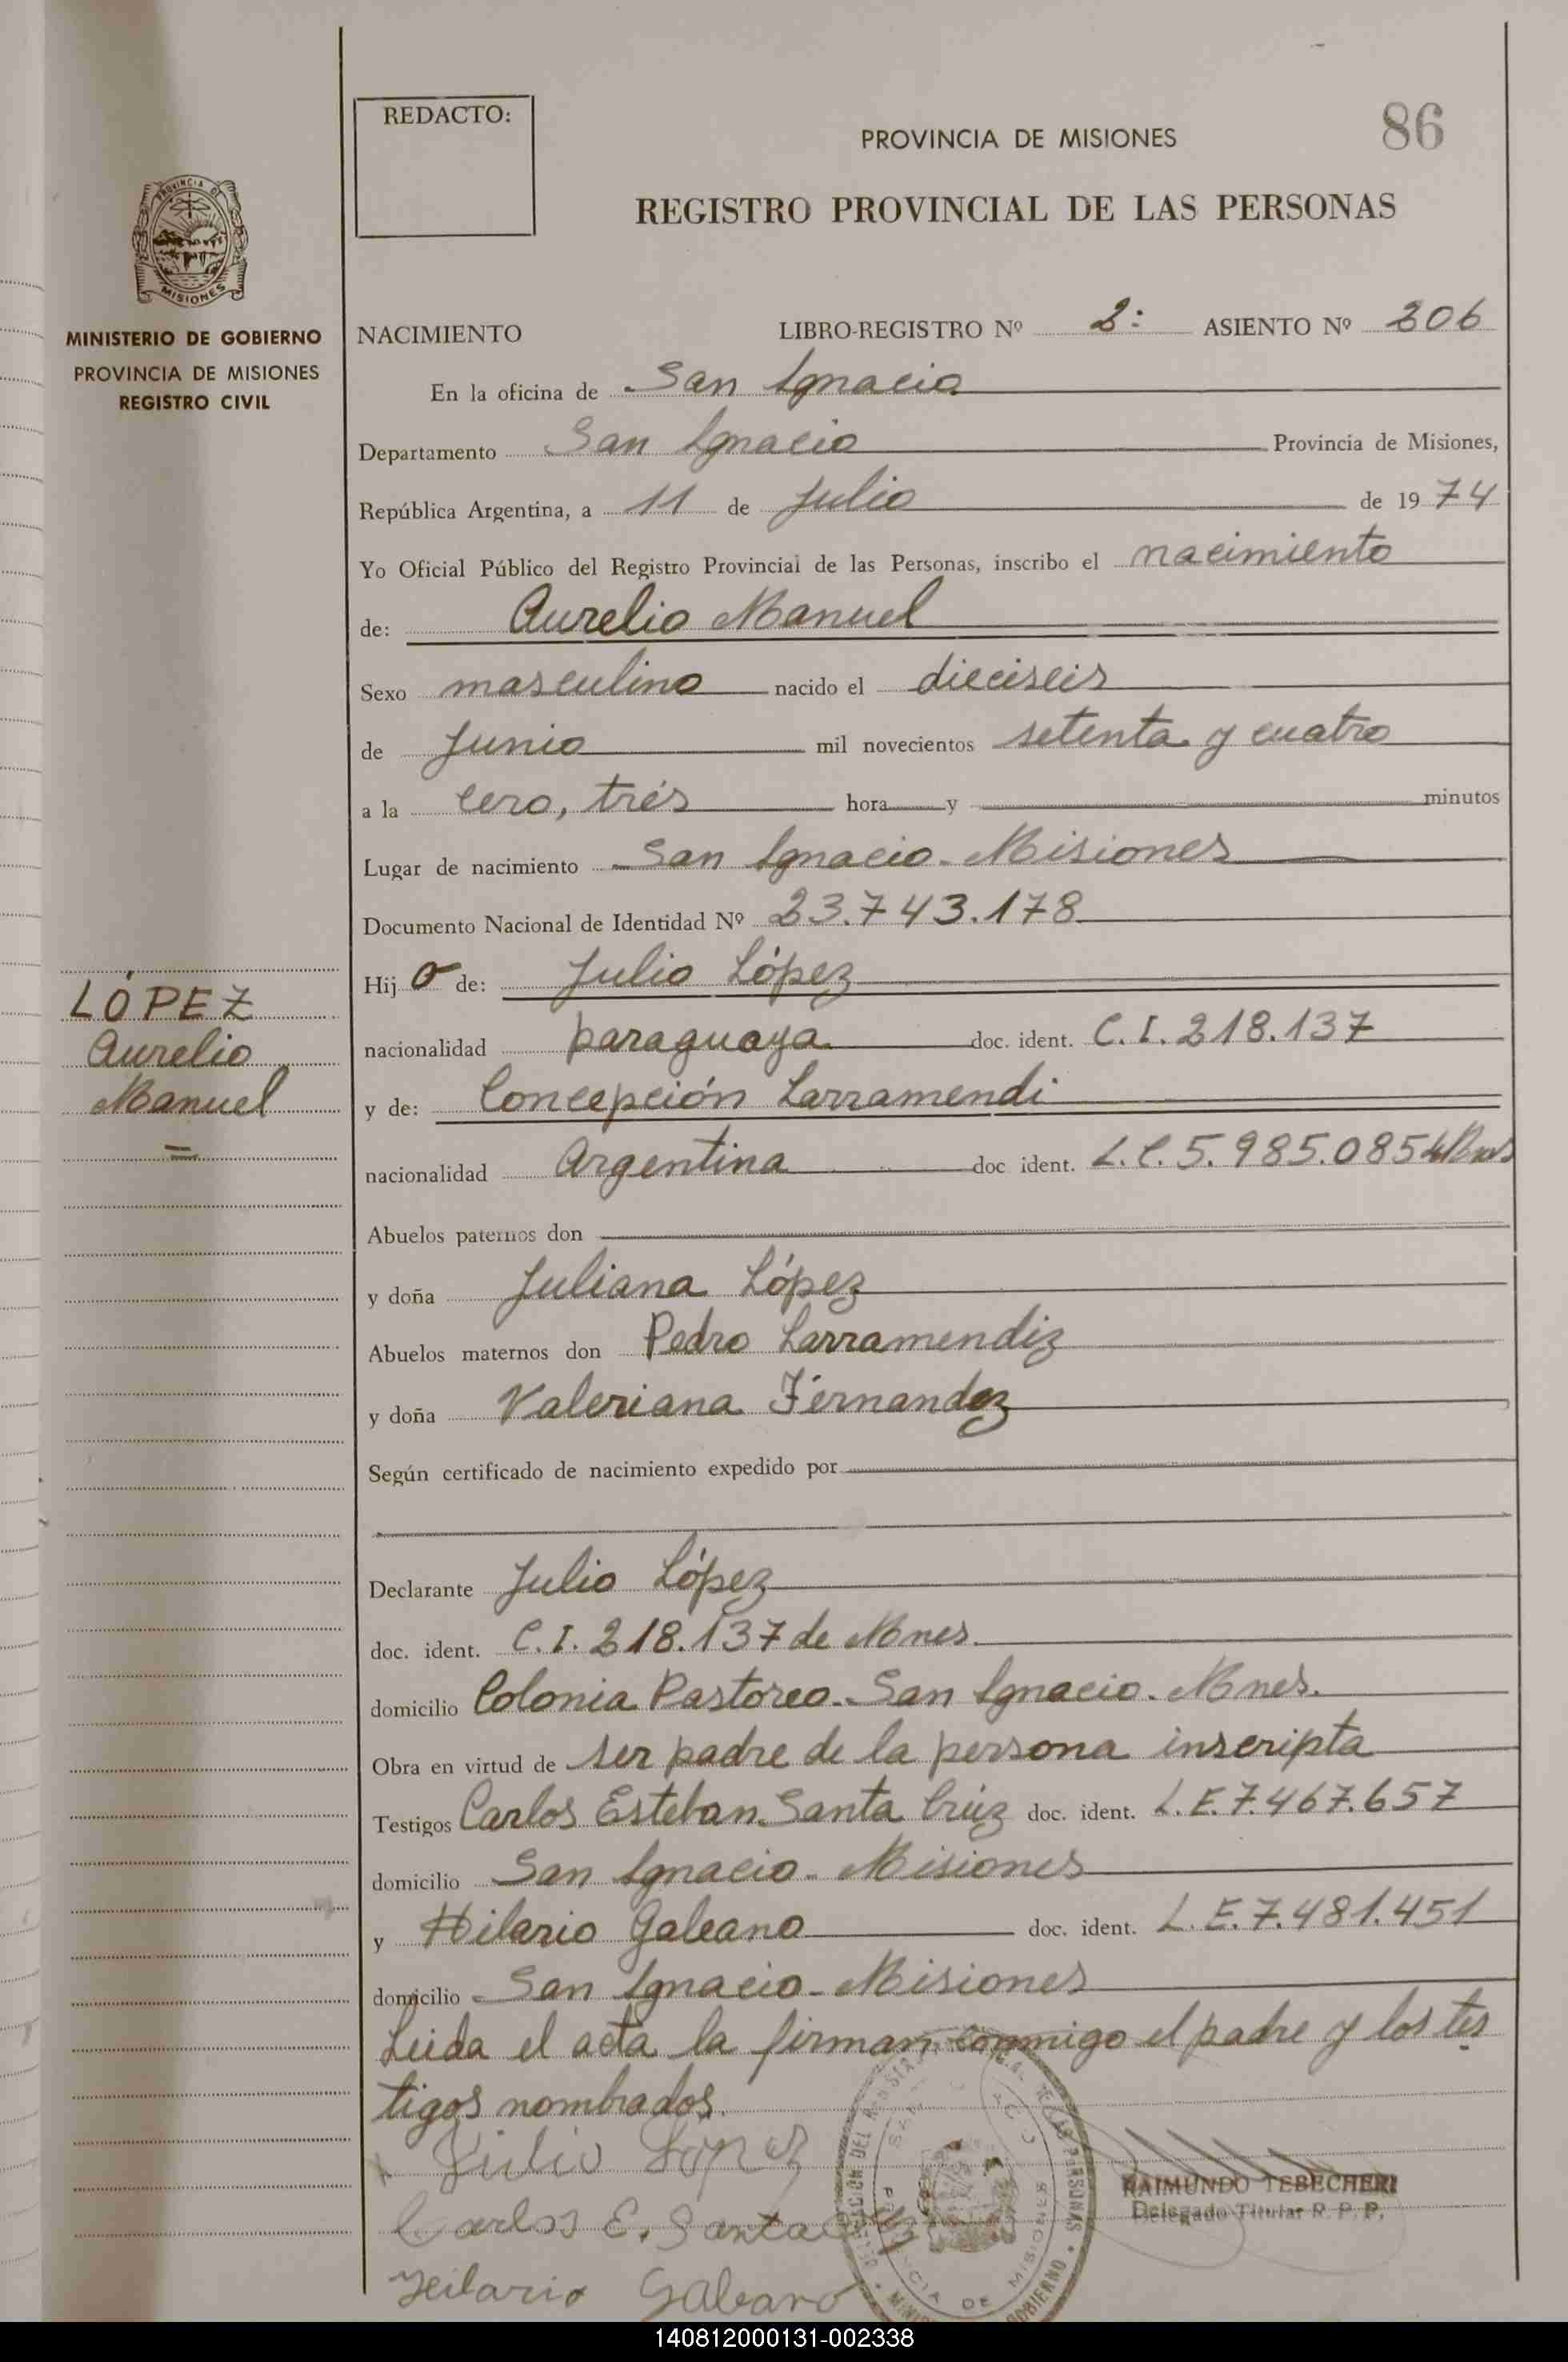 REDACTO:
PROVINCIA DE MISIONES
86
REGISTRO PROVINCIAL DE LAS PERSONAS
PROVINCIA DE
MISIONES
MINISTERIO DE GOBIERNO
PROVINCIA DE MISIONES
REGISTRO CIVIL
NACIMIENTO LIBRO-REGISTRO Nº 2: ASIENTO Nº 206
En la oficina de San Ignacio
Departamento San Ignacio Provincia de Misiones,
República Argentina, a 11 de Julio de 1974
Yo Oficial Público del Registro Provincial de las Personas, inscribo el nacimiento
de: Aurelio Manuel
Sexo masculino nacido el dieciseis
de Junio mil novecientos setenta y cuatro
a la cero, trés hora y minutos
Lugar de nacimiento San Ignacio - Misiones
Documento Nacional de Identidad Nº 23.743.178
Hijo de: Julio López
LÓPEZ
Aurelio
Manuel
=
nacionalidad paraguaya doc. ident. C.I. 218.137
y de: Concepción Larramendi
nacionalidad Argentina doc ident. L.C. 5.985.085
Abuelos paternos don
y doña Juliana López
Abuelos maternos don Pedro Larramendiz
y doña Valeriana Férnandez
Según certificado de nacimiento expedido por
Declarante Julio López
doc. ident. C.I. 218.137 de Mnes.
domicilio Colonia Pastoreo - San Ignacio. Mnes.
Obra en virtud de ser padre de la persona inscripta
Testigos Carlos Esteban Santa Crúz doc. ident. L.E. 7.467.657
domicilio San Ignacio - Misiones
y Hilario Galeano doc. ident. L.E. 7.481.451
domicilio San Ignacio - Misiones
Leida el acta la firman conmigo el padre y los tes
tigos nombrados.
Julio López
Carlos E. Santa
Hilario Galeano
RAIMUNDO TEBECHERI
Delegado Titular R. P. P.
140812000131-002338